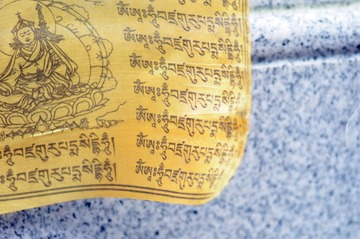 ཨོཾ་ཨཱཿཧཱུྃ་བཛྲ་གུ་རུ་པདྨ་སིདྡྷི་ཧཱུྃ།
ཨོཾ་ཨཱཿཧཱུྃ་བཛྲ་གུ་རུ་པདྨ་སིདྡྷི་ཧཱུྃ།
ཨོཾ་ཨཱཿཧཱུྃ་བཛྲ་གུ་རུ་པདྨ་སིདྡྷི་ཧཱུྃ།
ཨོཾ་ཨཱཿཧཱུྃ་བཛྲ་གུ་རུ་པདྨ་སིདྡྷི་ཧཱུྃ།
ཨོཾ་ཨཱཿཧཱུྃ་བཛྲ་གུ་རུ་པདྨ་སིདྡྷི་ཧཱུྃ།
ཨོཾ་ཨཱཿཧཱུྃ་བཛྲ་གུ་རུ་པདྨ་སིདྡྷི་ཧཱུྃ།
ཨོཾ་ཨཱཿཧཱུྃ་བཛྲ་གུ་རུ་པདྨ་སིདྡྷི་ཧཱུྃ།
ཧཱུྃ་བཛྲ་གུ་རུ་པདྨ་སིདྡྷི་ཧཱུྃ།
ཧཱུྃ་བཛྲ་གུ་རུ་པདྨ་སིདྡྷི་ཧཱུྃ།